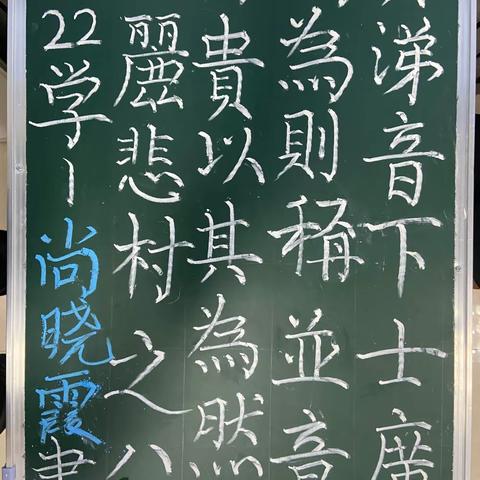 涕音下士廣
為則稱並音
貴以其為然
麗悲村之
22学|尚晓霞書